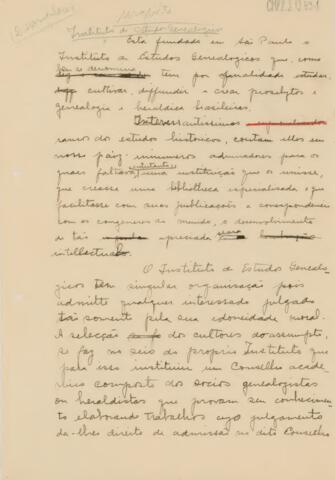 Instituto de Estudos Genealogicos
Está fundado em São Paulo o
Instituto de Estudos Genealogicos que, como
se denomina, tem por finalidade estudar,
cultivar, diffundir e criar proselytos á
genealogia e heraldica brasileiras.
Interessantissimos
ramos dos estudos historicos, contam elles em
nosso paiz, innumeros admiradores para os
quaes faltava, entretanto, uma instituição que os unisse,
que creasse uma bibliotheca especialisada e que
facilitasse com suas publicações e correspondencia
com os congeneres do mundo, o desenvolvimento
de tão apreciada
intellectual.
O Instituto de Estudos Genealo-
gicos tem singular organisação pois
admitte qualquer interessado julgado
tão somente pela sua idoneidade moral.
A selecção dos cultores do assumpto,
se faz no seio do proprio Instituto que
para isso instituiu um Conselho acade-
mico composto dos socios genealogistas
ou heraldistas que provam seu conhecimen-
to elaborando trabalhos cujo julgamento
dá-lhes direito de admissão no dito Conselho